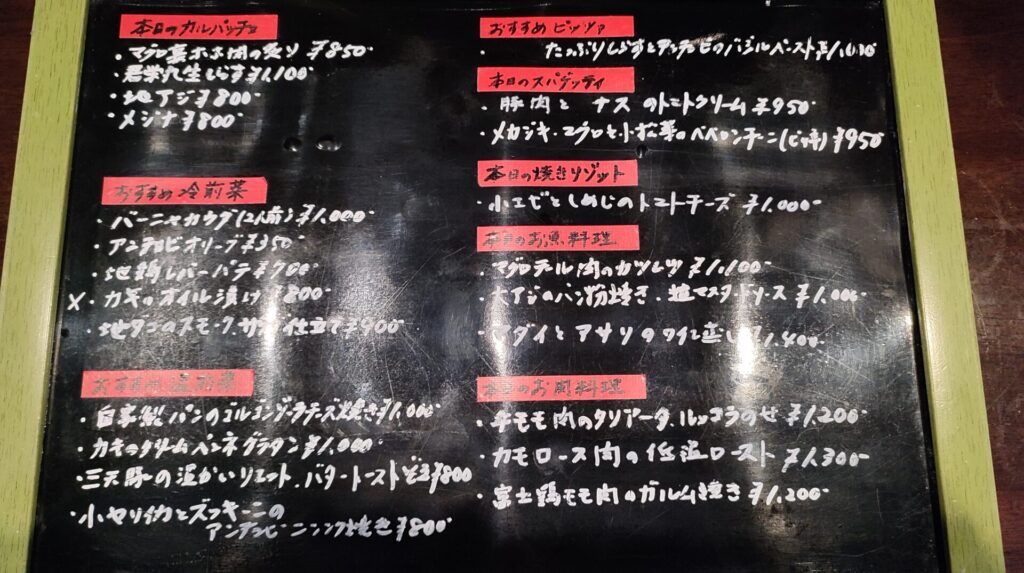 本日のカルパッチョ
・マグロ裏ホホ肉の炙り ¥850-
生しらす ¥1,100-
・地アジ ¥800-
・メジナ ¥800-
おすすめ冷前菜
・バーニャカウダ(2人前) ¥1,000-
・アンチョビオリーブ ¥350-
・地鶏レバーパテ ¥700-
×・カキのオイル漬け ¥800-
・地タコのスモークサラダ仕立て ¥900-
おすすめ温前菜
・自家製パンのゴルゴンゾーラチーズ焼き ¥1,000-
・カキのクリームペンネグラタン ¥1,000-
・三元豚の温かいリエット、バタートースト ¥800-
・小ヤリイカとズッキーニの
アンチョビニンニク焼き ¥800-
おすすめピッツァ
・たっぷりしらすとアンチョビのバジルペースト
本日のスパゲッティ
・豚肉とナスのトマトクリーム ¥950-
・メカジキ・マグロと小松菜のペペロンチーノ ¥950-
本日の焼きリゾット
・小エビとしめじのトマトチーズ ¥1,000-
本日のお魚料理
・マグロテール肉のカツレツ ¥1,100-
・大アジのパン粉焼き・粒マスタードソース ¥1,000-
・マダイとアサリのワイン蒸し ¥1,400-
本日のお肉料理
・牛モモ肉のタリアータ、ルッコラのせ ¥1,200-
・カモロース肉の低温ロースト ¥1,300-
・富士鶏モモ肉のガルム焼き ¥1,200-